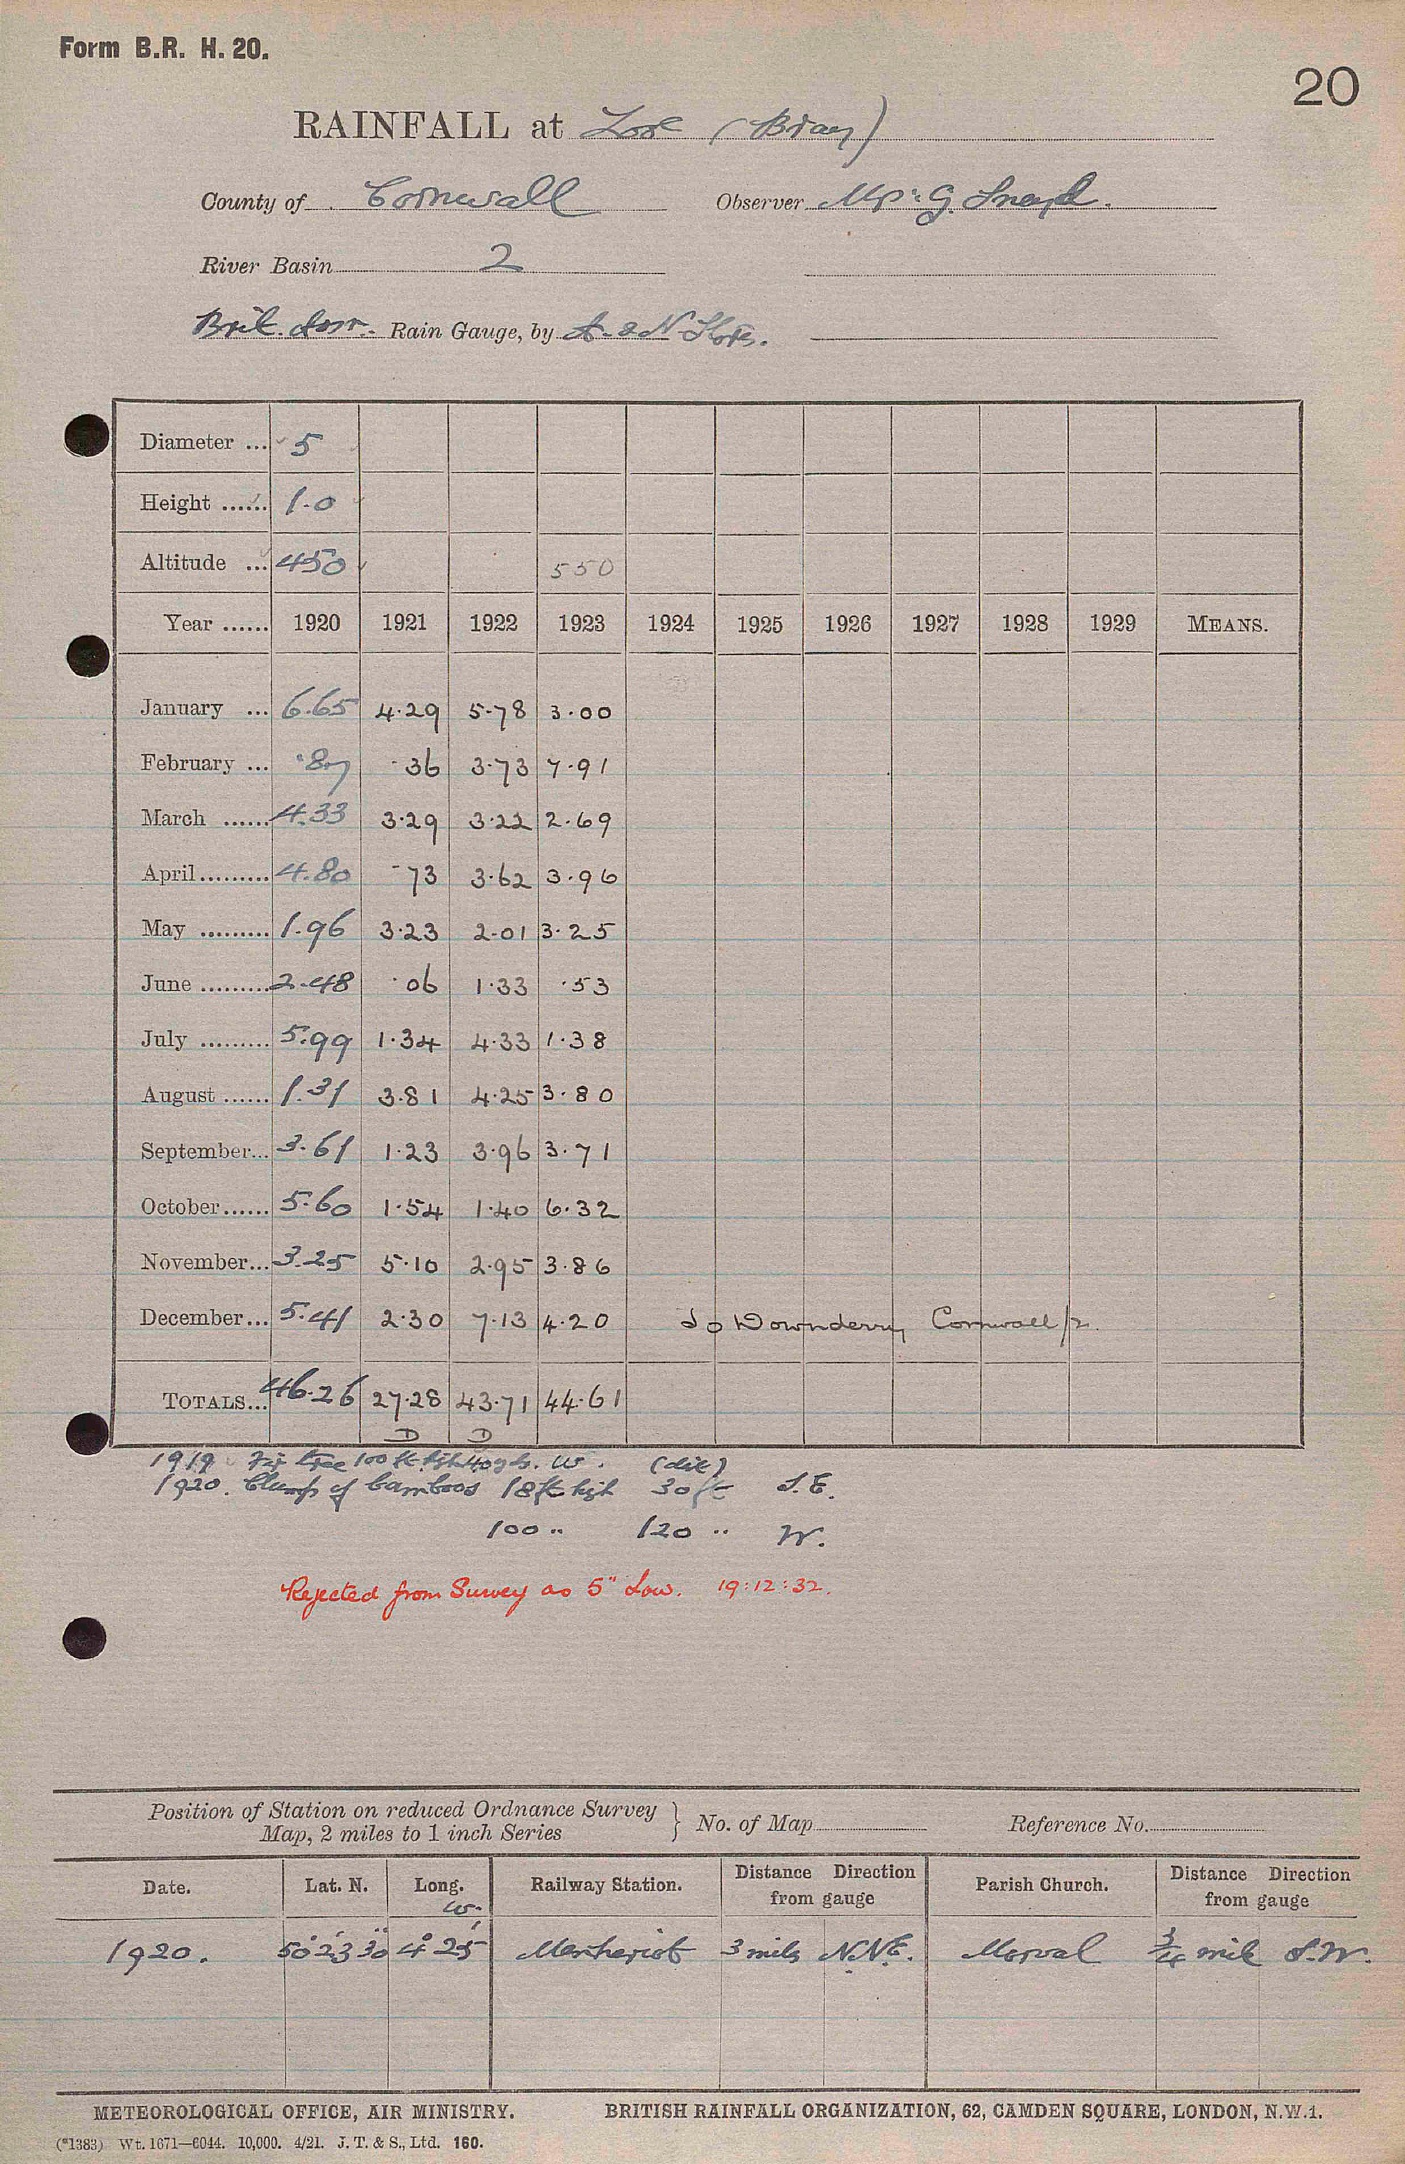 Form B.R. H. 20.
20
RAINFALL at Looe (Bray)
County of Cornwall Observer Mrs. G. Sneyd.
River Basin 2
Brit. Assn. Rain Gauge, by A. & N. Stores.
Diameter ... 5
Height ...... 1.0
Altitude ... 450 550
Year ...... 1920 1921 1922 1923 1924 1925 1926 1927 1928 1929 MEANS.
January ... 6.65 4.29 5.78 3.00
February ... .87 .36 3.73 7.91
March ...... 4.33 3.29 3.22 2.69
April ......... 4.80 .73 3.62 3.96
May ......... 1.96 3.23 2.01 3.25
June ......... 2.48 .06 1.33 .53
July ......... 5.99 1.34 4.33 1.38
August ...... 1.31 3.81 4.25 3.80
September... 3.61 1.23 3.96 3.71
October ...... 5.60 1.54 1.40 6.32
November... 3.25 5.10 2.95 3.86
December ... 5.41 2.30 7.13 4.20 To Downderry Cornwall/2.
TOTALS... 46.26 27.28 43.71 44.61
D D
1919 Fir tree 100 ft. high 40 yds. W.
1920. Clump of bamboos 18 ft high 30 ft S.E.
100 " 120 " W.
Rejected from Survey as 5" Low. 19:12:32.
Position of Station on reduced Ordnance Survey Map, 2 miles to 1 inch Series } No. of Map Reference No.
Date. Lat. N. Long. W. Railway Station. Distance Direction from gauge Parish Church. Distance Direction from gauge
1920. 50° 23' 30" 4° 25' Menheniot 3 miles N.N.E. Morval 3/4 mile S.W.
METEOROLOGICAL OFFICE, AIR MINISTRY. BRITISH RAINFALL ORGANIZATION, 62, CAMDEN SQUARE, LONDON, N.W.1.
(*1383) Wt. 1671—6044. 10,000. 4/21. J. T. & S., Ltd. 160.